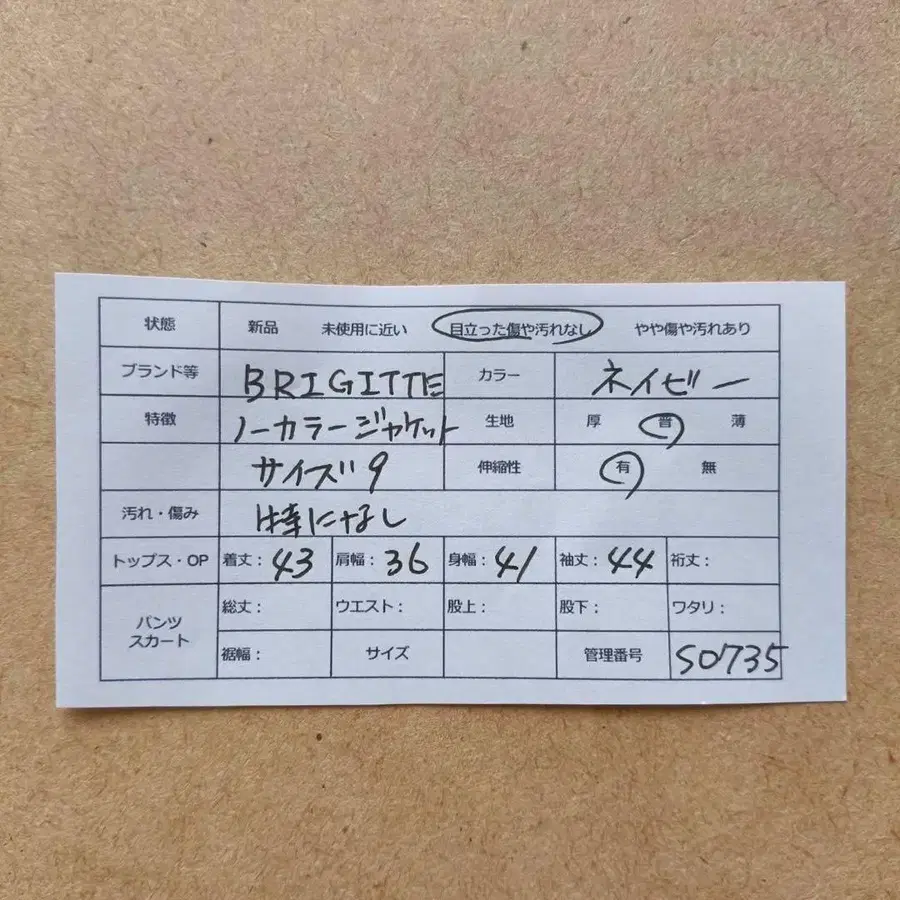 状態 新品 未使用に近い 目立った傷や汚れなし やや傷や汚れあり
ブランド等 BRIGITTE カラー ネイビー
特徴 ノーカラージャケット 生地 厚 普 薄
サイズ9 伸縮性 有 無
汚れ・傷み 特になし
トップス・OP 着丈：43 肩幅：36 身幅：41 袖丈：44 裄丈：
パンツ スカート 総丈： ウエスト： 股上： 股下： ワタリ：
裾幅： サイズ 管理番号 S0735